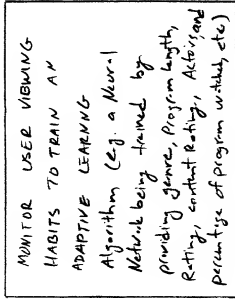 MONITOR USER VIEWING
HABITS TO TRAIN AN
ADAPTIVE LEARNNG
Algorithm (e.g. a Neural
Network being trained by
providing genre, Program length,
Rating, content Rating, Actors, and
percentage of program watched, etc.)